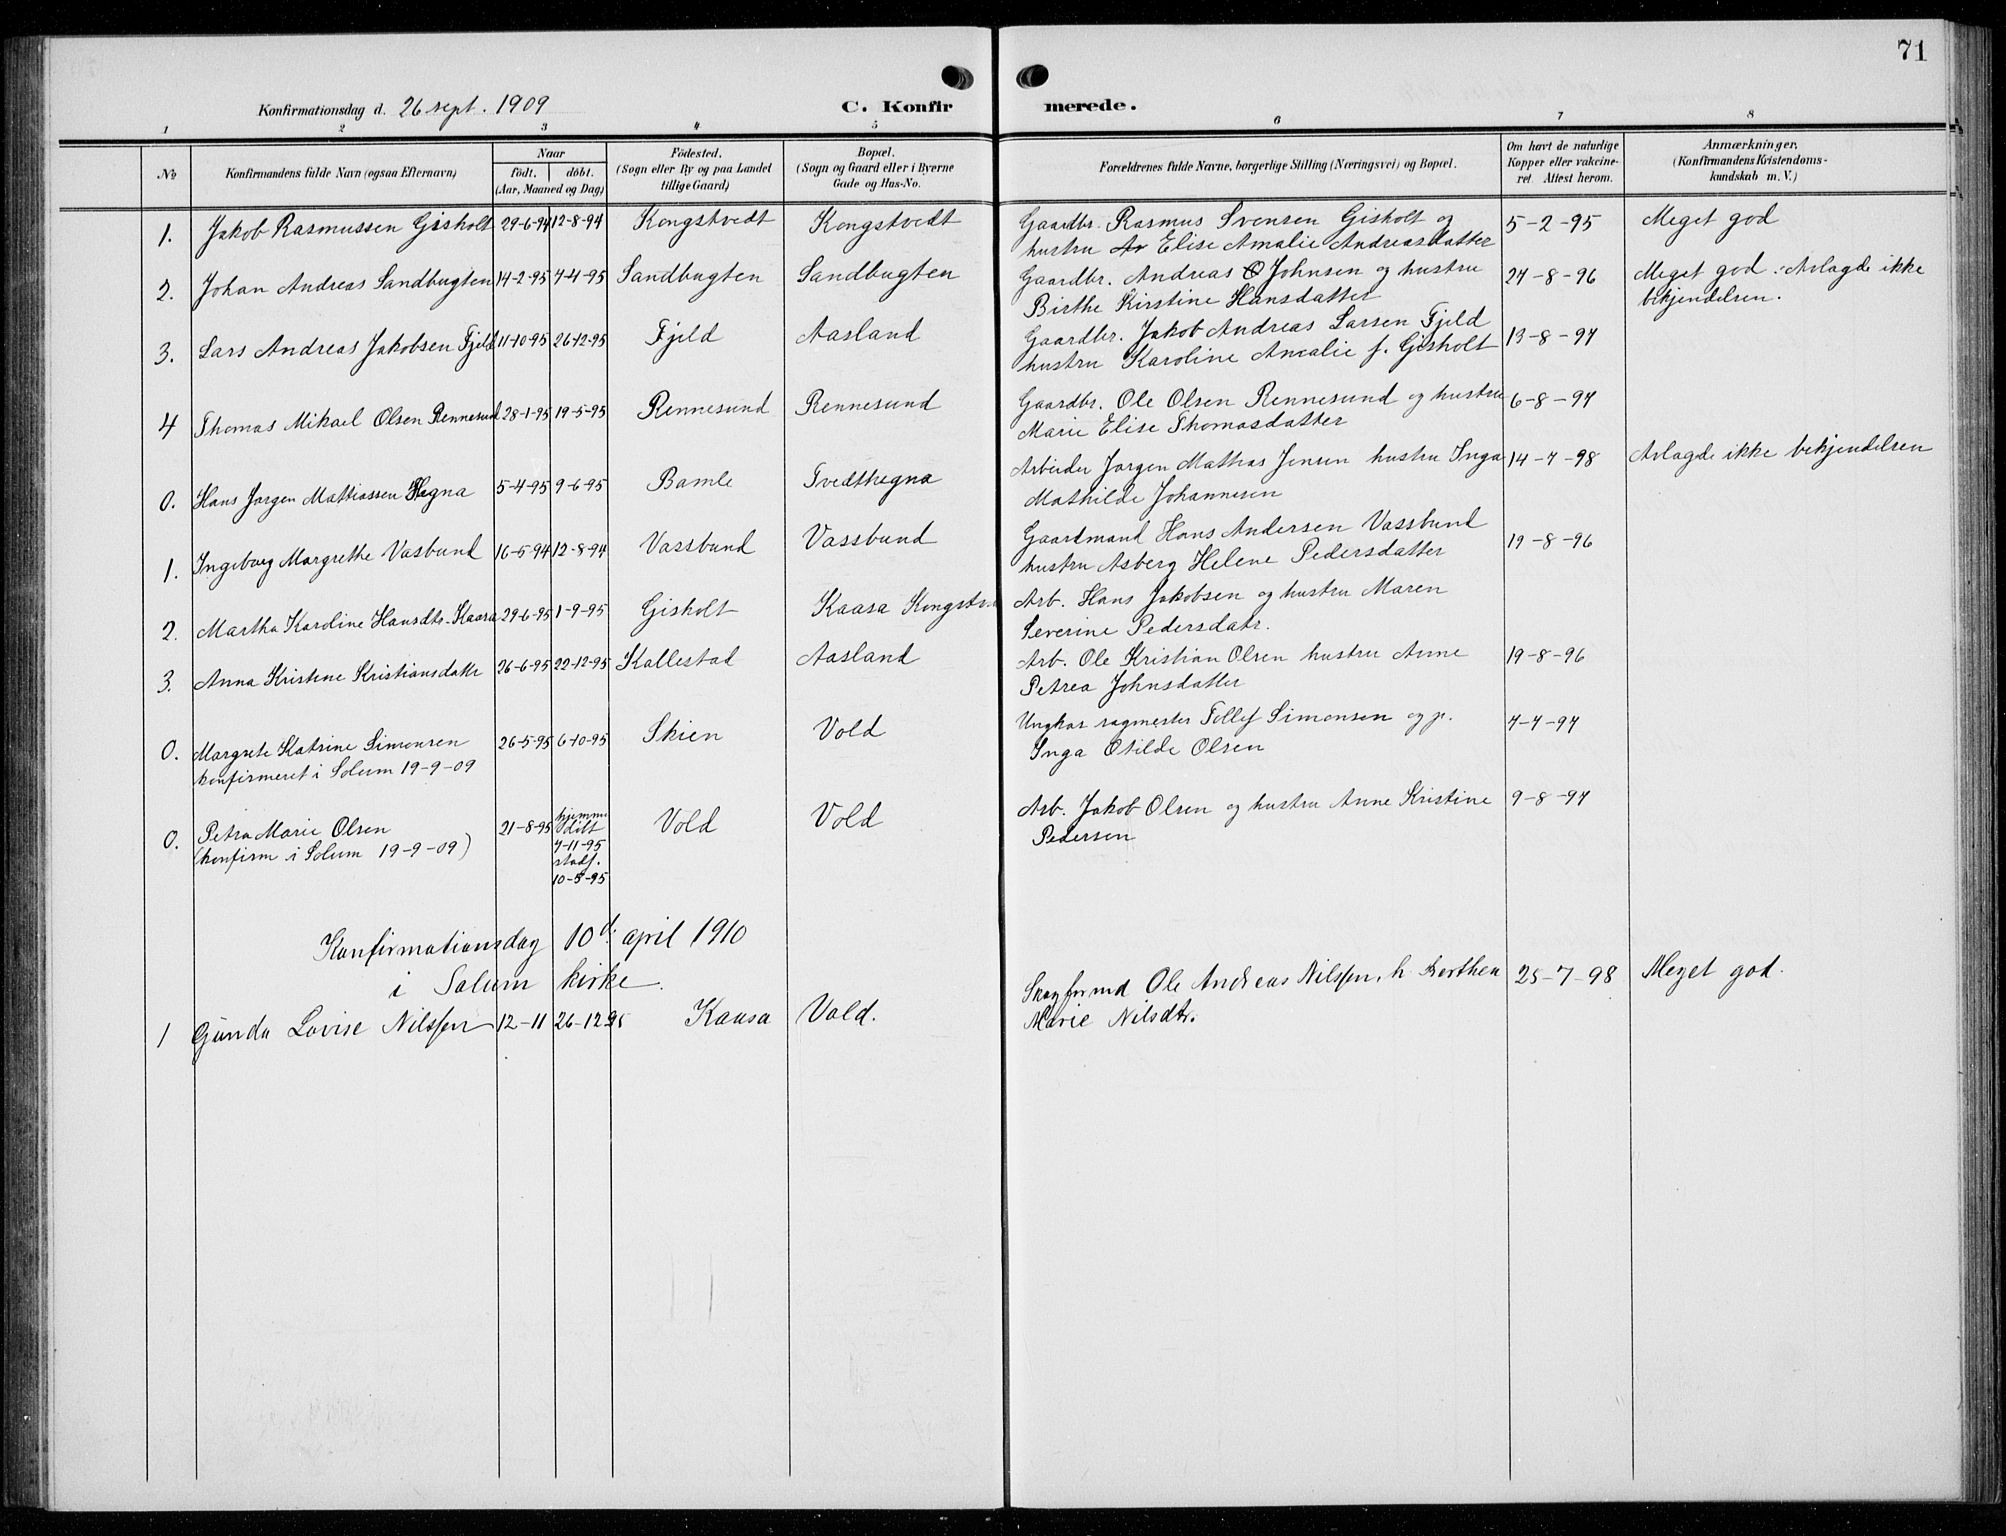 71
Konfirmationsdag d. 26 sept. 1909 C. Konfirmerede.
1 2 3 4 5 6 7 8
No Konfirmandens fulde Navn (ogsaa Efternavn) Naar født. døbt. (Aar, Maaned og Dag) Födested. (Sogn eller By og paa Landet tillige Gaard) Bopæl. (Sogn og Gaard eller i Byerne Gade og Hus-No. Forældrenes fulde Navne, borgerlige Stilling (Næringsvei) og Bopæl. Om havt de naturlige Kopper eller vakcineret. Attest herom. Anmærkninger, (Konfirmandens Kristendomskundskab m. V.)
1. Jakob Rasmussen Gisholt 29-6-94 12-8-94 Kongstvedt Kongstvedt Gaardbr. Rasmus Svensen Gisholt og 5-2-95 Meget god
hustru Elise Amalie Andreasdatter
2. Johan Andreas Sandbugten 14-2-95 7-4-95 Sandbugten Sandbugten Gaardbr. Andreas Johnsen og hustru 24-8-96 Meget god. Avlagde ikke
Birthe Kirstine Hansdatter bekjendelsen.
3. Lars Andreas Jakobsen Fjeld 11-10-95 26-12-95 Fjeld Aasland Gaardbr. Jakob Andreas Larsen Fjeld 13-8-97
hustru Karoline Amalie f. Gisholt
4 Thomas Mikael Olsen Rennesund 28-1-95 19-5-95 Rennesund Rennesund Gaardbr. Ole Olsen Rennesund og hustru 6-8-97
Marie Elise Thomasdatter
0. Hans Jørgen Mattiassen Hegna 5-4-95 9-6-95 Bamle Tvedthegna Arbeider Jørgen Mathias Jensen hustru Inga 14-7-98 Avlagde ikke bekjendelsen
Mathilde Johannesen
1. Ingeborg Margrethe Vasbund 16-5-94 12-8-94 Vassbund Vassbund Gaardmand Hans Andersen Vassbund 19-8-96
hustru Asberg Helene Pedersdatter
2. Martha Karoline Hansdtr. Kaasa 29-6-95 1-9-95 Gisholt Kaasa Arb. Hans Jakobsen og hustru Maren
Severine Pedersdatr.
3. Anna Kristine Kristiansdatte 26-6-95 22-12-95 Kallestad Aasland Arb. Ole Kristian Olsen hustru Anne 19-8-96
Petrea Johnsdatter
0. Margrete Katrine Simonsen 26-5-95 6-10-95 Skien Vold Ungkar sagmester Tellef Simonsen og p. 7-7-97
konfirmeret i Solum 19-9-09 Inga Otilde Olsen
0. Petra Marie Olsen 21-8-95 hjemmedøbt Vold Vold Arb. Jakob Olsen og hustru Anne Kristine 9-8-97
(konfirm i Solum 19-9-09) 7-11-95 Pedersen
stadf.
10-5-95
Konfirmationsdag 10d. april 1910
i Solum kirke.
1 Gunda Lovise Nilssen 12-11 26-12 95 Kaasa Vold. Ole Andreas Nilssen, h. Berthea 25-7-98 Meget god.
Marie Nilsdtr.